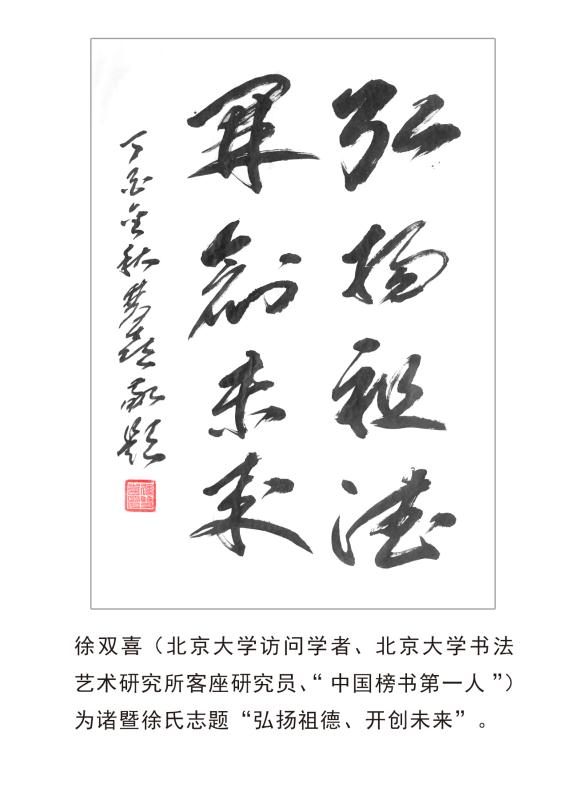 弘扬祖德
開創未来
丁酉金秋雙喜敬題
徐双喜（北京大学访问学者、北京大学书法
艺术研究所客座研究员、“中国榜书第一人”）
为诸暨徐氏志题“弘扬祖德、开创未来”。